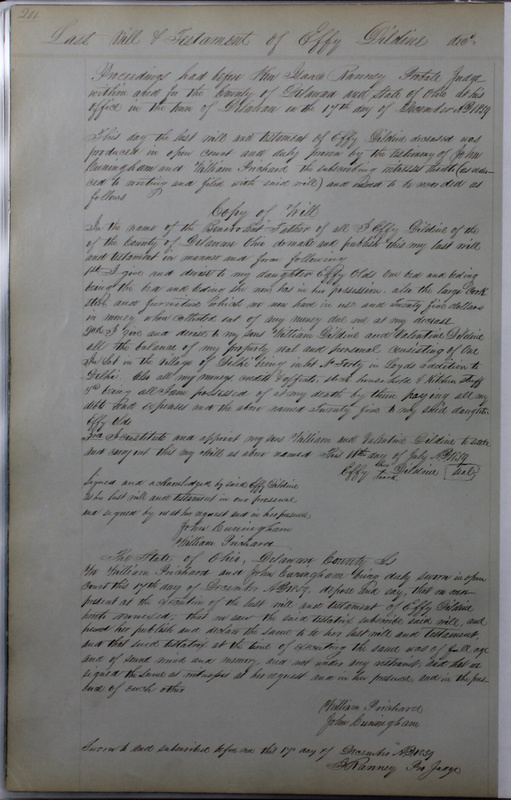 Last Will & Testament of Effy Dildine decd.
Proceedings had before Hon Isaac Ranney Probate Judge
within and for the County of Delaware and State of Ohio at his
office in the town of Delaware on the 17th day of December AD 1859
This day the last will and testament of Effy Dildine deceased was
produced in open court and duly proven by the testimony of John
Cuningham and William Prichard the subscribing witnesses thereto (as redu-
ced to writing and filed with said will) and to be recorded as
follows
Copy of Will
In the name of the Benevolent Father of all I Effy Dildine of the
of the County of Delaware Ohio do make and publish this my last will
and testament in manner and form following
1st I give and devise to my daughter Effy Olds One bed and beding
being the bed and beding she now has in her possession. also the large Cook
stove and furniture which we now have in use and Twenty five dollars
in money when collected out of any money due me at my decease
2nd I give and devise to my sons William Dildine and Valentine Dildine
all the balance of my property real and personal consisting of One
In Lot in the village of Delhi being inlot No Forty in Loyds addition to
Delhi. Also all my moneys credits & effects, stock household & Kitchen stuff
being all I am possessed of at my death by there paying all my
debts and expenses and the above named Twenty five to my said daughter
Effy Olds
3rd I constitute and appoint my sons William and Valentine Dildine to
and carry out this my will as above named This 18th day of July AD 1859
Effy her mark Dildine Seal
Signed and acknowledged by said Effy Dildine
as her last will and testament in our presence
and signed by us at her request and in her presence
John Cuningham
William Prichard
The State of Ohio, Delaware County Ss
We William Prichard and John Cuningham being duly sworn in open
Court this 17th day of December AD 1859, depose and say, that we were
present at the execution of the last will and testament of Effy Dildine
hereto annexed; that we saw the said testatrix subscribe said will, and
heard her publish and declare the same to be her last will and testament,
and that said testatrix at the time of executing the same was of full age
and of sound mind and memory and not under any restraint, and that we
signed the same as witnesses at her request and in her presence and in the pres-
ence of each other
William Prichard
John Cuningham
Sworn to and subscribed before me this 17 day of December AD 1859
I Ranney Pro Judge